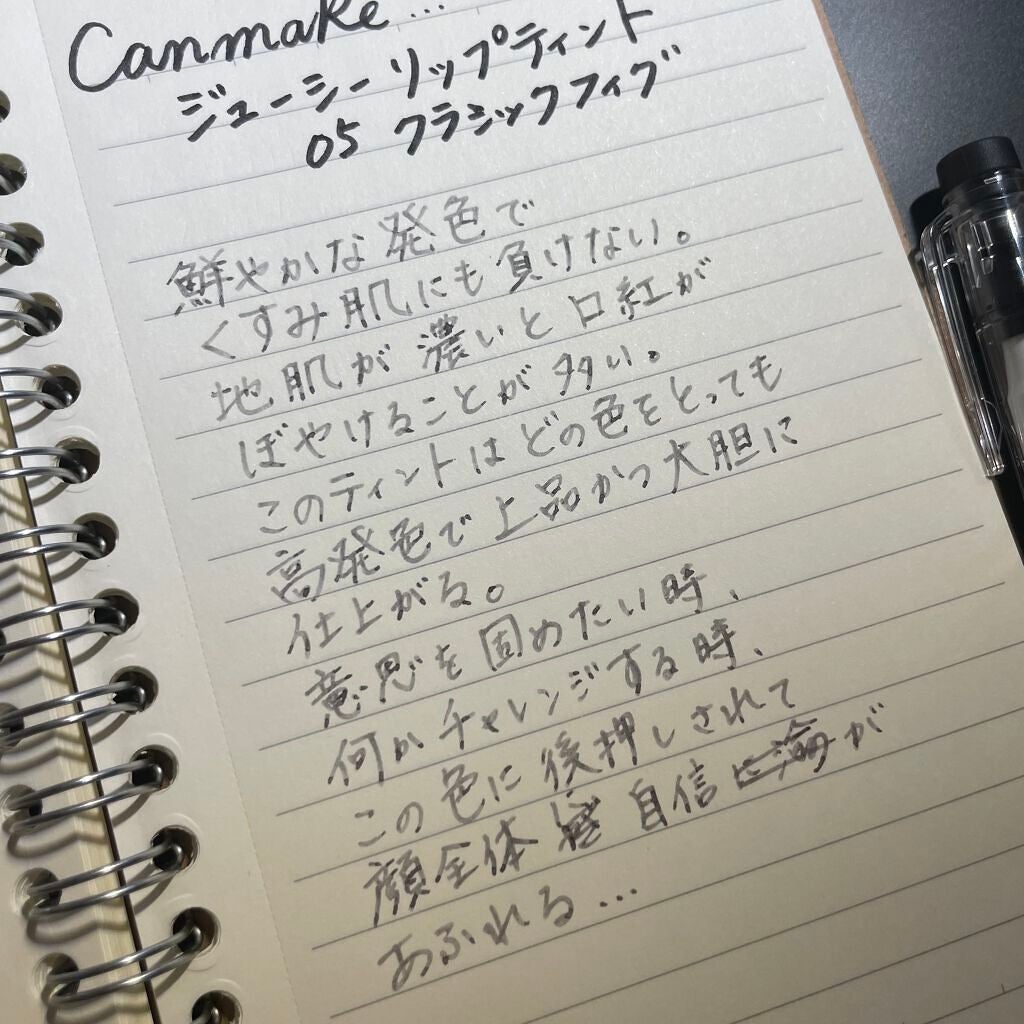 Canmake...
ジューシーリップティント
05 クラシックフィグ
鮮やかな発色で
くすみ肌にも負けない。
地肌が濃いと口紅が
ぼやけることが多い。
このティントはどの色をとっても
高発色で上品かつ大胆に
仕上がる。
意思を固めたい時、
何かチャレンジする時、
この色に後押しされて
顔全体 自信が
あふれる...